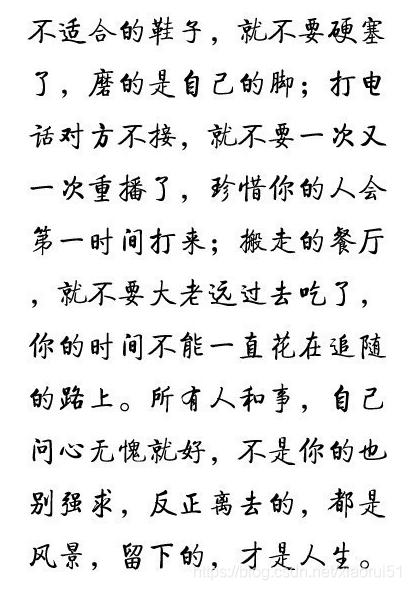 不适合的鞋子，就不要硬塞
了，磨的是自己的脚；打电
话对方不接，就不要一次又
一次重播了，珍惜你的人会
第一时间打来；搬走的餐厅
，就不要大老远过去吃了，
你的时间不能一直花在追随
的路上。所有人和事，自己
问心无愧就好，不是你的也
别强求，反正离去的，都是
风景，留下的，才是人生。
https://blog.csdn.net/xiaorui51